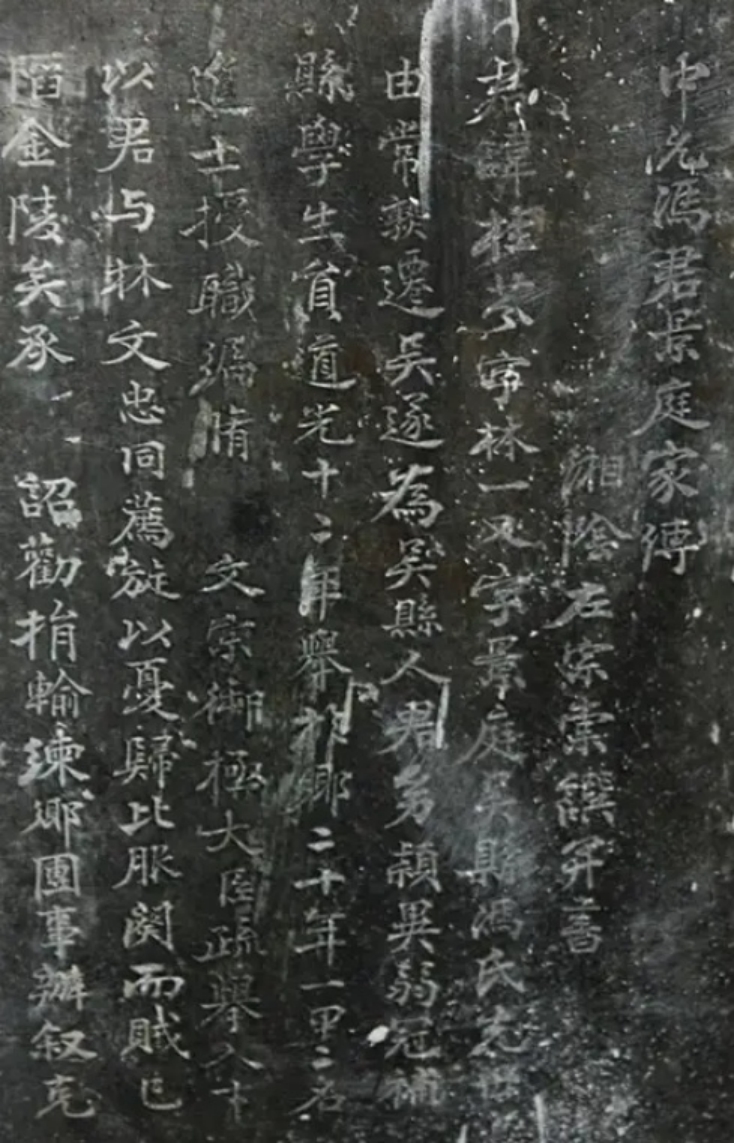 中允馮君景庭家傳
湘陰左宗棠譔并書
君諱桂芬字林一又字景庭吳縣馮氏先世
由常熟遷吳遂為吳縣人君少穎異弱冠補
縣學生員道光十二年舉於鄉二十年一甲二名
進士授職編脩 文宗御極大臣疏舉人才
以君与林文忠同薦旋以憂歸比服闋而賊已
陷金陵矣承 詔勸捐輸練鄉團事辦叙克